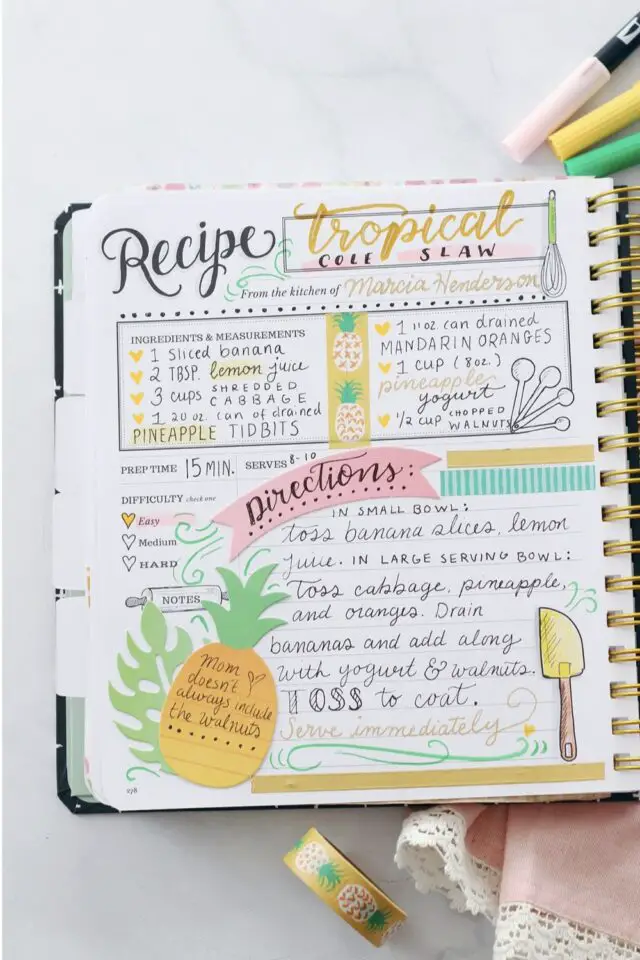 Recipe
tropical
COLE SLAW
From the kitchen of Marcia Henderson
INGREDIENTS & MEASUREMENTS
1 sliced banana
2 TBSP. lemon juice
3 cups SHREDDED CABBAGE
1 20 oz. can of drained
PINEAPPLE TIDBITS
1 11oz can drained
MANDARIN ORANGES
1 cup (8oz.)
pineapple
yogurt
1/2 cup CHOPPED
WALNUTS
PREP TIME 15 MIN.
SERVES 8-10
DIFFICULTY check one
Easy
Medium
HARD
NOTES
Mom
doesn't
always include
the walnuts
Directions:
IN SMALL BOWL:
toss banana slices, lemon
juice. IN LARGE SERVING BOWL:
Toss cabbage, pineapple,
and oranges. Drain
bananas and add along
with yogurt & walnuts.
TOSS to coat.
Serve immediately
278